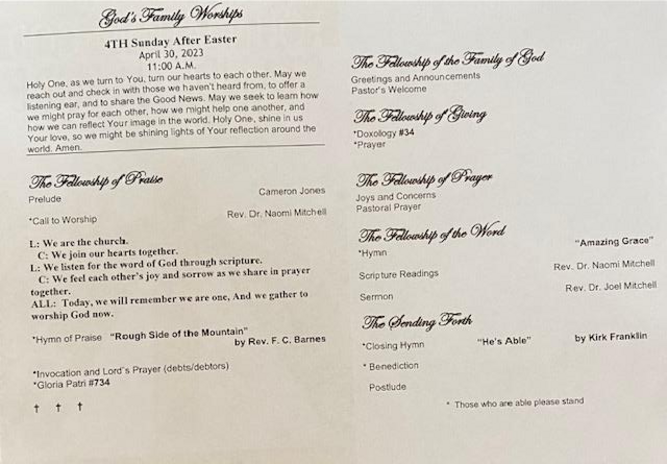 God's Family Worships
4TH Sunday After Easter
April 30, 2023
11:00 A.M.
Holy One, as we turn to You, turn our hearts to each other. May we
reach out and check in with those we haven't heard from, to offer a
listening ear, and to share the Good News. May we seek to learn how
we might pray for each other, how we might help one another, and
how we can reflect Your image in the world. Holy One, shine in us
Your love, so we might be shining lights of Your reflection around the
world. Amen.
The Fellowship of Praise
Prelude Cameron Jones
*Call to Worship Rev. Dr. Naomi Mitchell
L: We are the church.
C: We join our hearts together.
L: We listen for the word of God through scripture.
C: We feel each other's joy and sorrow as we share in prayer
together.
ALL: Today, we will remember we are one, And we gather to
worship God now.
*Hymn of Praise "Rough Side of the Mountain"
by Rev. F. C. Barnes
*Invocation and Lord's Prayer (debts/debtors)
*Gloria Patri #734
The Fellowship of the Family of God
Greetings and Announcements
Pastor's Welcome
The Fellowship of Giving
*Doxology #34
*Prayer
The Fellowship of Prayer
Joys and Concerns
Pastoral Prayer
The Fellowship of the Word
*Hymn "Amazing Grace"
Scripture Readings Rev. Dr. Naomi Mitchell
Sermon Rev. Dr. Joel Mitchell
The Sending Forth
*Closing Hymn "He's Able" by Kirk Franklin
* Benediction
Postlude
* Those who are able please stand